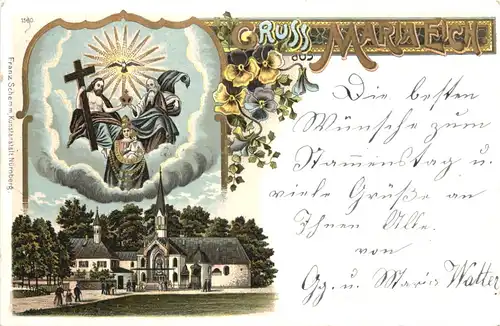 1160.
Franz Schemm, Kunstanstalt, Nürnberg.
GRUSS aus MARIA ECH
Die besten
Wünsche zum
Stammenstag u.
viele Grüße an
Ihnen Alle.
von
Gg. u. Maria Walter